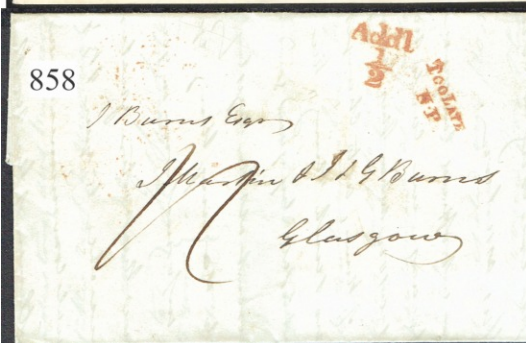 858
Addl
1/2
TOO LATE
N.P.
J Burns Esqr
J Martin & J & G Burns
Glasgow